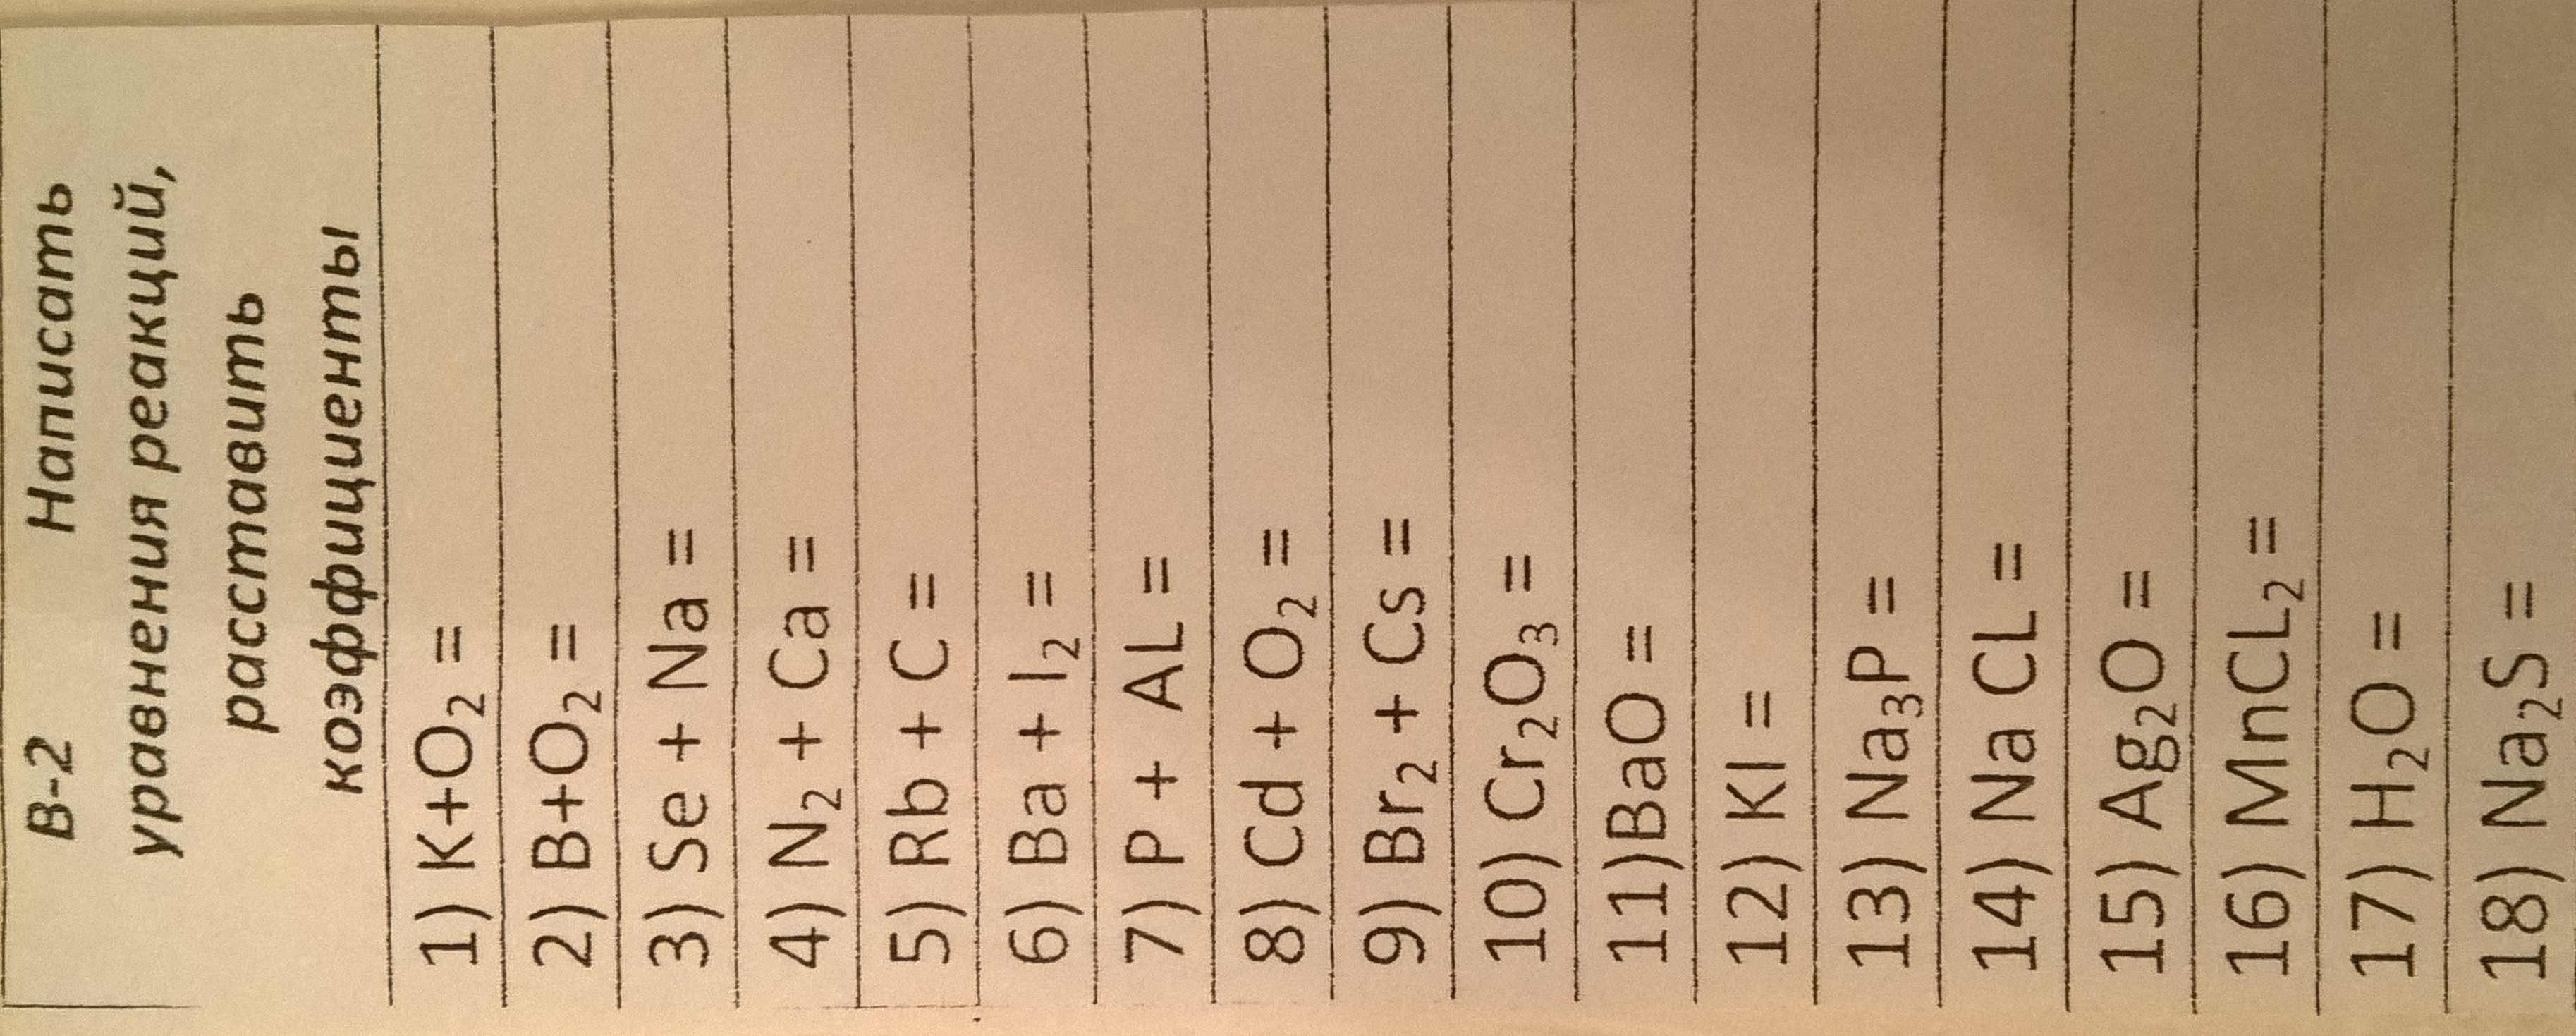 В-2 Написать
уравнения реакций,
расставить
коэффициенты
1) K+O₂ =
2) B+O₂ =
3) Se + Na =
4) N₂ + Ca =
5) Rb + C =
6) Ba + I₂ =
7) P + AL =
8) Cd + O₂ =
9) Br₂ + Cs =
10) Cr₂O₃ =
11)BaO =
12) KI =
13) Na₃P =
14) Na CL =
15) Ag₂O =
16) MnCL₂ =
17) H₂O =
18) Na₂S =